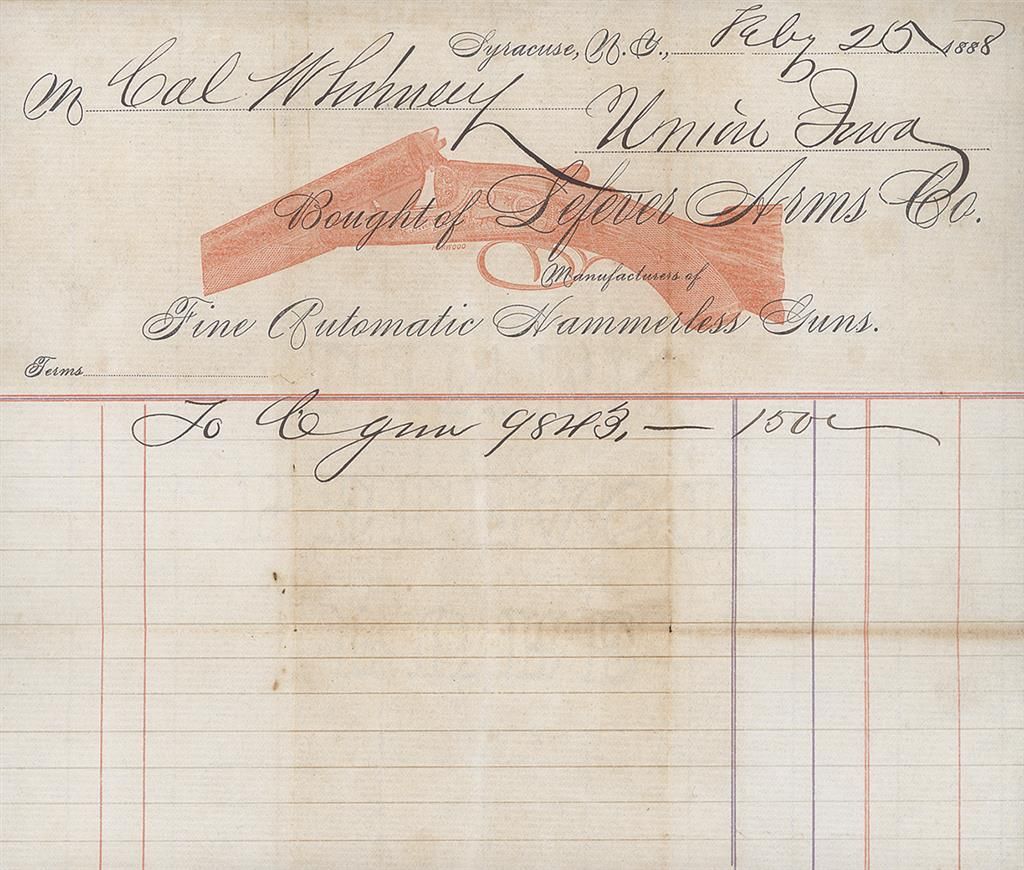 Syracuse, N. Y., Feby 25 1888
M Cal Whinery
Union Iowa
Bought of Lefever Arms Co.
Manufacturers of
Fine Automatic Hammerless Guns.
Terms
To C gun 9843, — 150